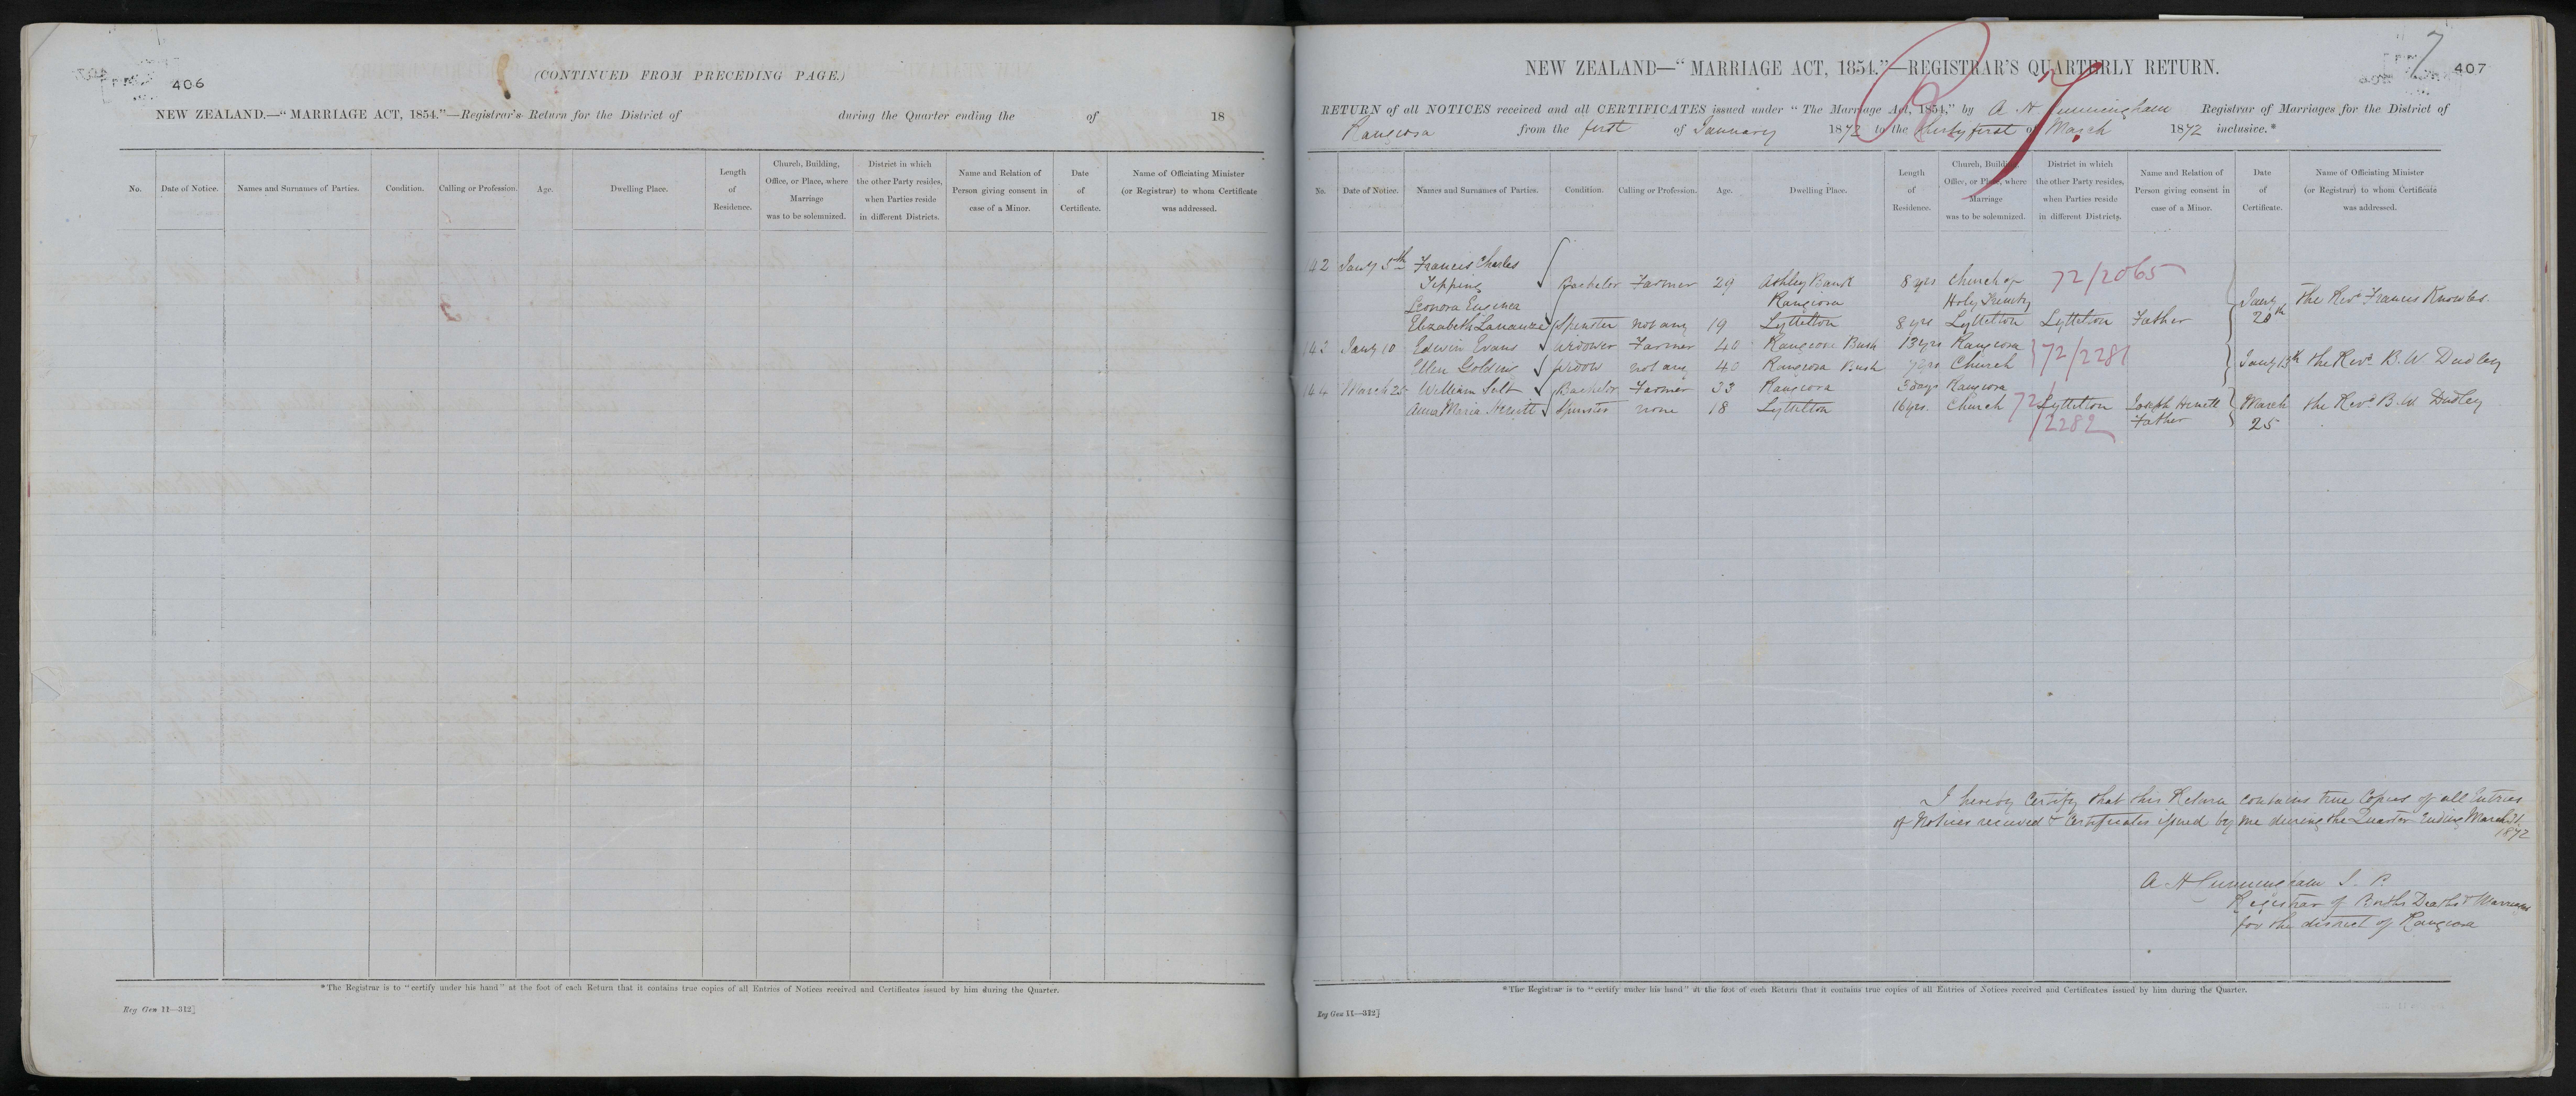 406
(CONTINUED FROM PRECEDING PAGE.)
NEW ZEALAND.—"MARRIAGE ACT, 1854."—Registrar's Return for the District of during the Quarter ending the of 18
No. Date of Notice. Names and Surnames of Parties. Condition. Calling or Profession. Age. Dwelling Place. Length of Residence. Church, Building, Office, or Place, where Marriage was to be solemnized. District in which the other Party resides, when Parties reside in different Districts. Name and Relation of Person giving consent in case of a Minor. Date of Certificate. Name of Officiating Minister (or Registrar) to whom Certificate was addressed.
*The Registrar is to "certify under his hand" at the foot of each Return that it contains true copies of all Entries of Notices received and Certificates issued by him during the Quarter.
Reg Gen 11—312]
7
407
NEW ZEALAND—"MARRIAGE ACT, 1854."—REGISTRAR'S QUARTERLY RETURN.
RETURN of all NOTICES received and all CERTIFICATES issued under "The Marriage Act, 1854," by A H Cunningham Registrar of Marriages for the District of
Rangiora from the first of January 1872 to the thirty first of March 1872 inclusive.*
No. Date of Notice. Names and Surnames of Parties. Condition. Calling or Profession. Age. Dwelling Place. Length of Residence. Church, Building, Office, or Place, where Marriage was to be solemnized. District in which the other Party resides, when Parties reside in different Districts. Name and Relation of Person giving consent in case of a Minor. Date of Certificate. Name of Officiating Minister (or Registrar) to whom Certificate was addressed.
142 Jany 5th Francis Charles
Tipping Bachelor Farmer 29 Ashley Bank 8 yrs Church of 72/2065
Leonora Rangiora Holy Trinity Jany The Revd Francis Knowles
Elizabeth Spinster not any 19 Lyttelton 8 yrs Lyttelton Lyttelton Father 20th
143 Jany 10 Edwin Evans Widower Farmer 40 Rangiora Bush 13 yrs Rangiora 72/2281
Ellen Golding Widow not any 40 Rangiora Bush 7 yrs Church Jany 13th the Revd B. W. Dudley
144 March 25 William Bachelor Farmer 33 Rangiora 3 days Rangiora
Anna Maria Hewett Spinster none 18 Lyttelton 16 yrs. Church Lyttelton Joseph Hewett March the Revd B. W. Dudley
72/2282 Father 25
I hereby Certify that this Return contains true Copies of all Entries
of Notices received & Certificates issued by me during the Quarter Ending March 31
1872
A H Cunningham J. P.
Registrar of Births Deaths & Marriages
for the district of Rangiora
*The Registrar is to "certify under his hand" at the foot of each Return that it contains true copies of all Entries of Notices received and Certificates issued by him during the Quarter.
Reg Gen 11—312]